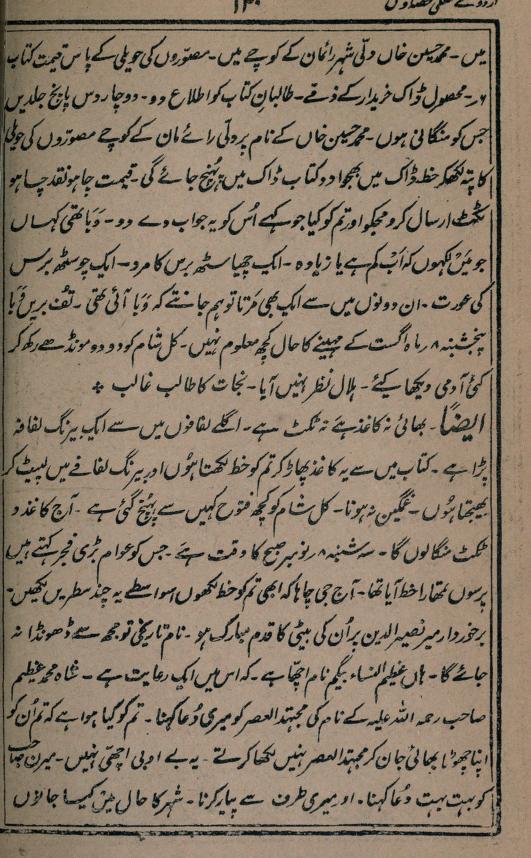 ۱۳۰
اردوے معلی حصہ اول
میں۔ محمد حسین خاں دلّی شہر رائمان کے کوچے میں۔ مصوّروں کی حویلی کے پاس قیمت کتاب
۶؍۔ محصول ڈاک خریدار کے ذمّے۔ طالبانِ کتاب کو اطلاع دو۔ دو چار دس پانچ جلدیں
جس کو منگانی ہوں۔ محمد حسین خاں کے نام پر دلّی رائے مان کے کوچے مصوّروں کی حویلی
کا پتہ لکھکر خط ڈاک میں بھجوا دو کتاب ڈاک میں پہُنچ جائے گی۔ قیمت چاہو نقد چاہو
ٹکٹ ارسال کرو مجکو اور تم کو کیا جو کہے اُس کو یہ جواب دے دو۔ وَبا تھی کہاں
جو میَں لکھوں کہ اَب کم ہے یا زیادہ۔ ایک چھیاسٹھ برس کا مرد۔ ایک چوسٹھ برس
کی عورت۔ ان دونوں میں سے ایک بھی مَرتا تو ہم جانتے کہ وَبا آئی تھی۔ تُف بریں وَبا
پنجشنبہ ۸؍ ماہ اگست کے مہینے کا حال کچھ معلوم نہیں۔ کل شام کو دو دو مونڈھے رکھ کر
کئی آدمی دیکھا کیئے۔ ہلال نظر نہیں آیا۔ نجات کا طالب غالب ÷
ایضًا۔ بھائی نہ کاغذ ہَے نہ ٹکٹ ہے۔ اگلے لفافوں میں سے ایک بیرنگ لفافہ
پڑا ہے۔ کتاب میں سے یہ کاغذ پھاڑ کر تم کو خط لکھتا ہُوں اور بیرنگ لفافے میں لپیٹ کر
بھیجتا ہُوں۔ غمگین نہ ہونا۔ کل شام کو کچھ فتوح کہیں سے پہنچ گئی ہے۔ آج کاغذ و
ٹکٹ منگا لوں گا۔ سہ شنبہ ۸؍ نومبر صبح کا وقت ہَے۔ جس کو عوام بڑی فجر کہتے ہیں
پرسوں تمھارا خط آیا تھا۔ آج جی چاہا کہ ابھی تم کو خط لکھوں اسواسطے یہ چند سطریں لکھیں۔
برخوردار میر نصیر الدین پر اُن کی بیٹی کا قدم مبارک ہو۔ نام تاریخی تو مجھ سے ڈھونڈا نہ
جائے گا۔ ہاں عظیم النساء بیگم نام اچھّا ہے۔ کہ اس میں ایک رعایت ہے۔ شاہ محمد عظیم
صاحب رحمہ اللہ علیہ کے نام کی مجتہد العصر کو میری دُعا کہنا۔ تم کو کیا ہوا ہے کہ تم اُن کو
اپنا چھوٹا بھائی جان کر مجتہد العصر نہیں لکھا کرتے۔ یہ بے ادبی اچھّی نہیں۔ میرن صاحب
کو بہت بہت دُعا کہنا۔ اور میری طرف سے پیار کرنا۔ شہر کا حال میَں کیا جانوں